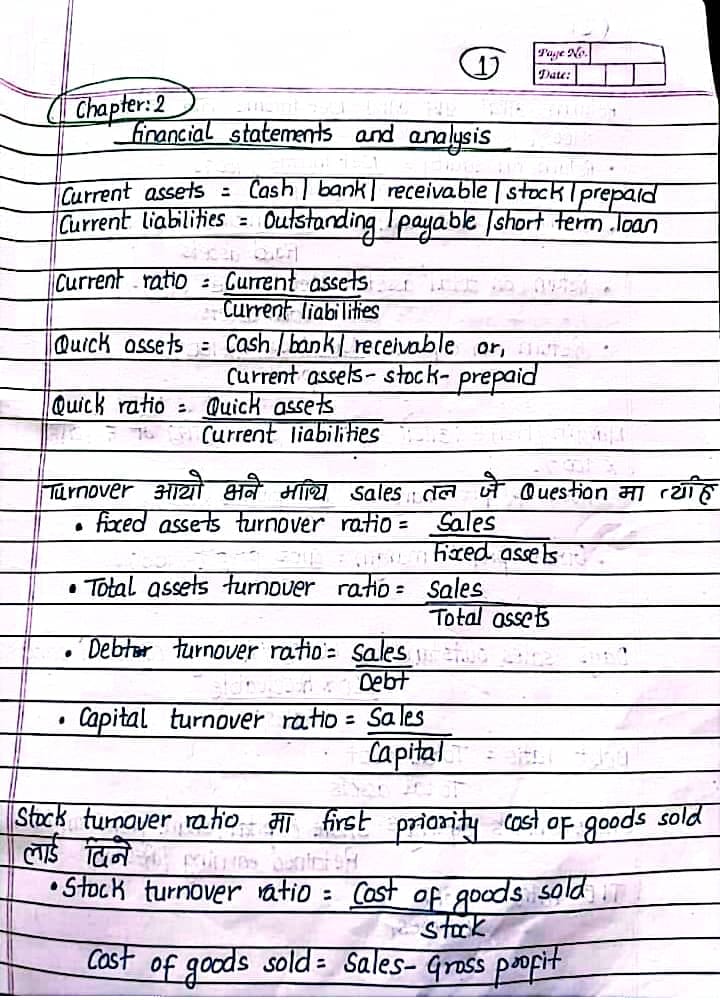 1
Page No.
Date:
Chapter: 2
financial statements and analysis
Current assets = Cash / bank / receivable / stock / prepaid
Current liabilities = Outstanding / payable / short term loan
Current ratio = Current assets
Current liabilities
Quick assets = Cash / bank / receivable or,
Current assets - stock - prepaid
Quick ratio = Quick assets
Current liabilities
Turnover आयो भने माथि sales तल जे Question मा त्यहि
• fixed assets turnover ratio = Sales
Fixed assets
• Total assets turnover ratio = Sales
Total assets
• Debtor turnover ratio = Sales
Debt
• Capital turnover ratio = Sales
Capital
Stock turnover ratio मा first priority cost of goods sold
लाई दिने
• Stock turnover ratio = Cost of goods sold
Stock
Cost of goods sold = Sales - Gross profit